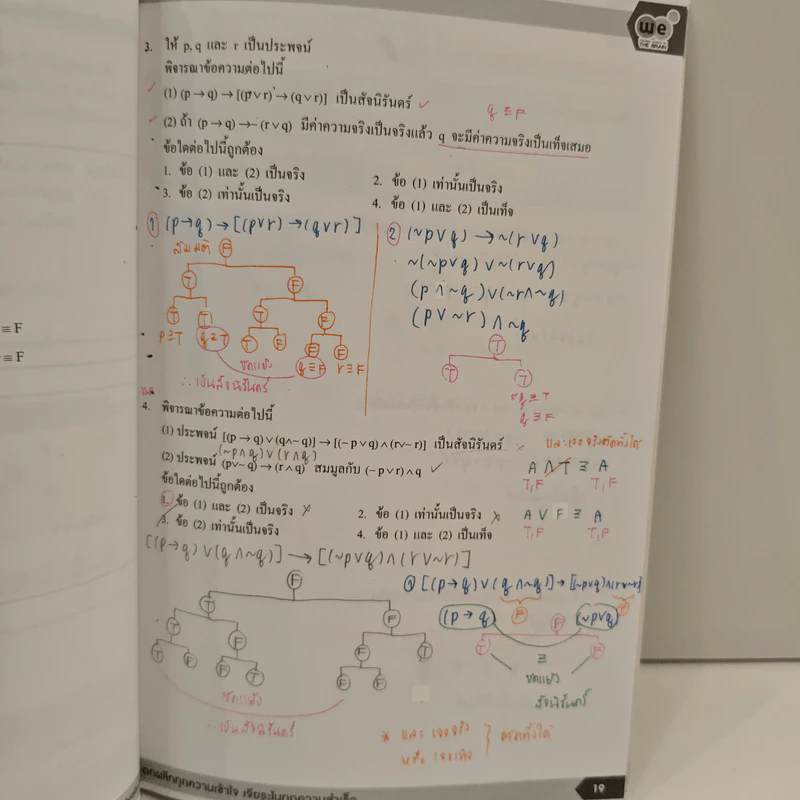 we
THE BRAIN
3. ให้ p, q และ r เป็นประพจน์
พิจารณาข้อความต่อไปนี้
(1) (p → q) → [(p ∨ r) → (q ∨ r)] เป็นสัจนิรันดร์ ✓
q ≡ F
(2) ถ้า (p → q) → ~ (r ∨ q) มีค่าความจริงเป็นจริงแล้ว q จะมีค่าความจริงเป็นเท็จเสมอ
ข้อใดต่อไปนี้ถูกต้อง
1. ข้อ (1) และ (2) เป็นจริง
2. ข้อ (1) เท่านั้นเป็นจริง
3. ข้อ (2) เท่านั้นเป็นจริง
4. ข้อ (1) และ (2) เป็นเท็จ
1 (p → q) → [(p ∨ r) → (q ∨ r)]
สมมติ F
T F
T T T F
T F F F
p ≡ T q ≡ T
q ≡ F r ≡ F
ขัดแย้ง
∴ เป็นสัจนิรันดร์
2 (~p ∨ q) → ~(r ∨ q)
~(~p ∨ q) ∨ ~(r ∨ q)
(p ∧ ~q) ∨ (~r ∧ ~q)
(p ∨ ~r) ∧ ~q
T
T T
~q ≡ T
q ≡ F
≡ F
≡ F
4. พิจารณาข้อความต่อไปนี้
(1) ประพจน์ [(p → q) ∨ (q ∧ ~ q)] → [(~ p ∨ q) ∧ (r ∨ ~ r)] เป็นสัจนิรันดร์
(~p ∧ q) ∨ (r ∧ q)
(2) ประพจน์ (p ∨ ~ q) → (r ∧ q) สมมูลกับ (~ p ∨ r) ∧ q ✓
ข้อใดต่อไปนี้ถูกต้อง
1. ข้อ (1) และ (2) เป็นจริง
2. ข้อ (1) เท่านั้นเป็นจริง
3. ข้อ (2) เท่านั้นเป็นจริง
4. ข้อ (1) และ (2) เป็นเท็จ
และเจอจริงตัดทิ้งได้
A ∧ T ≡ A
T,F T,F
A ∨ F ≡ A
T,F T,F
[(p → q) ∨ (q ∧ ~q)] → [(~p ∨ q) ∧ (r ∨ ~r)]
F
T F
T F F T
T F F T F F
ขัดแย้ง
∴ เป็นสัจนิรันดร์
[(p → q) ∨ (q ∧ ~q)] → [(~p ∨ q) ∧ (r ∨ ~r)]
(p → q) F (~p ∨ q)
F
T F
≡
ขัดแย้ง
สัจนิรันดร์
* และ เจอจริง
หรือ เจอเท็จ
ตัดทิ้งได้
19